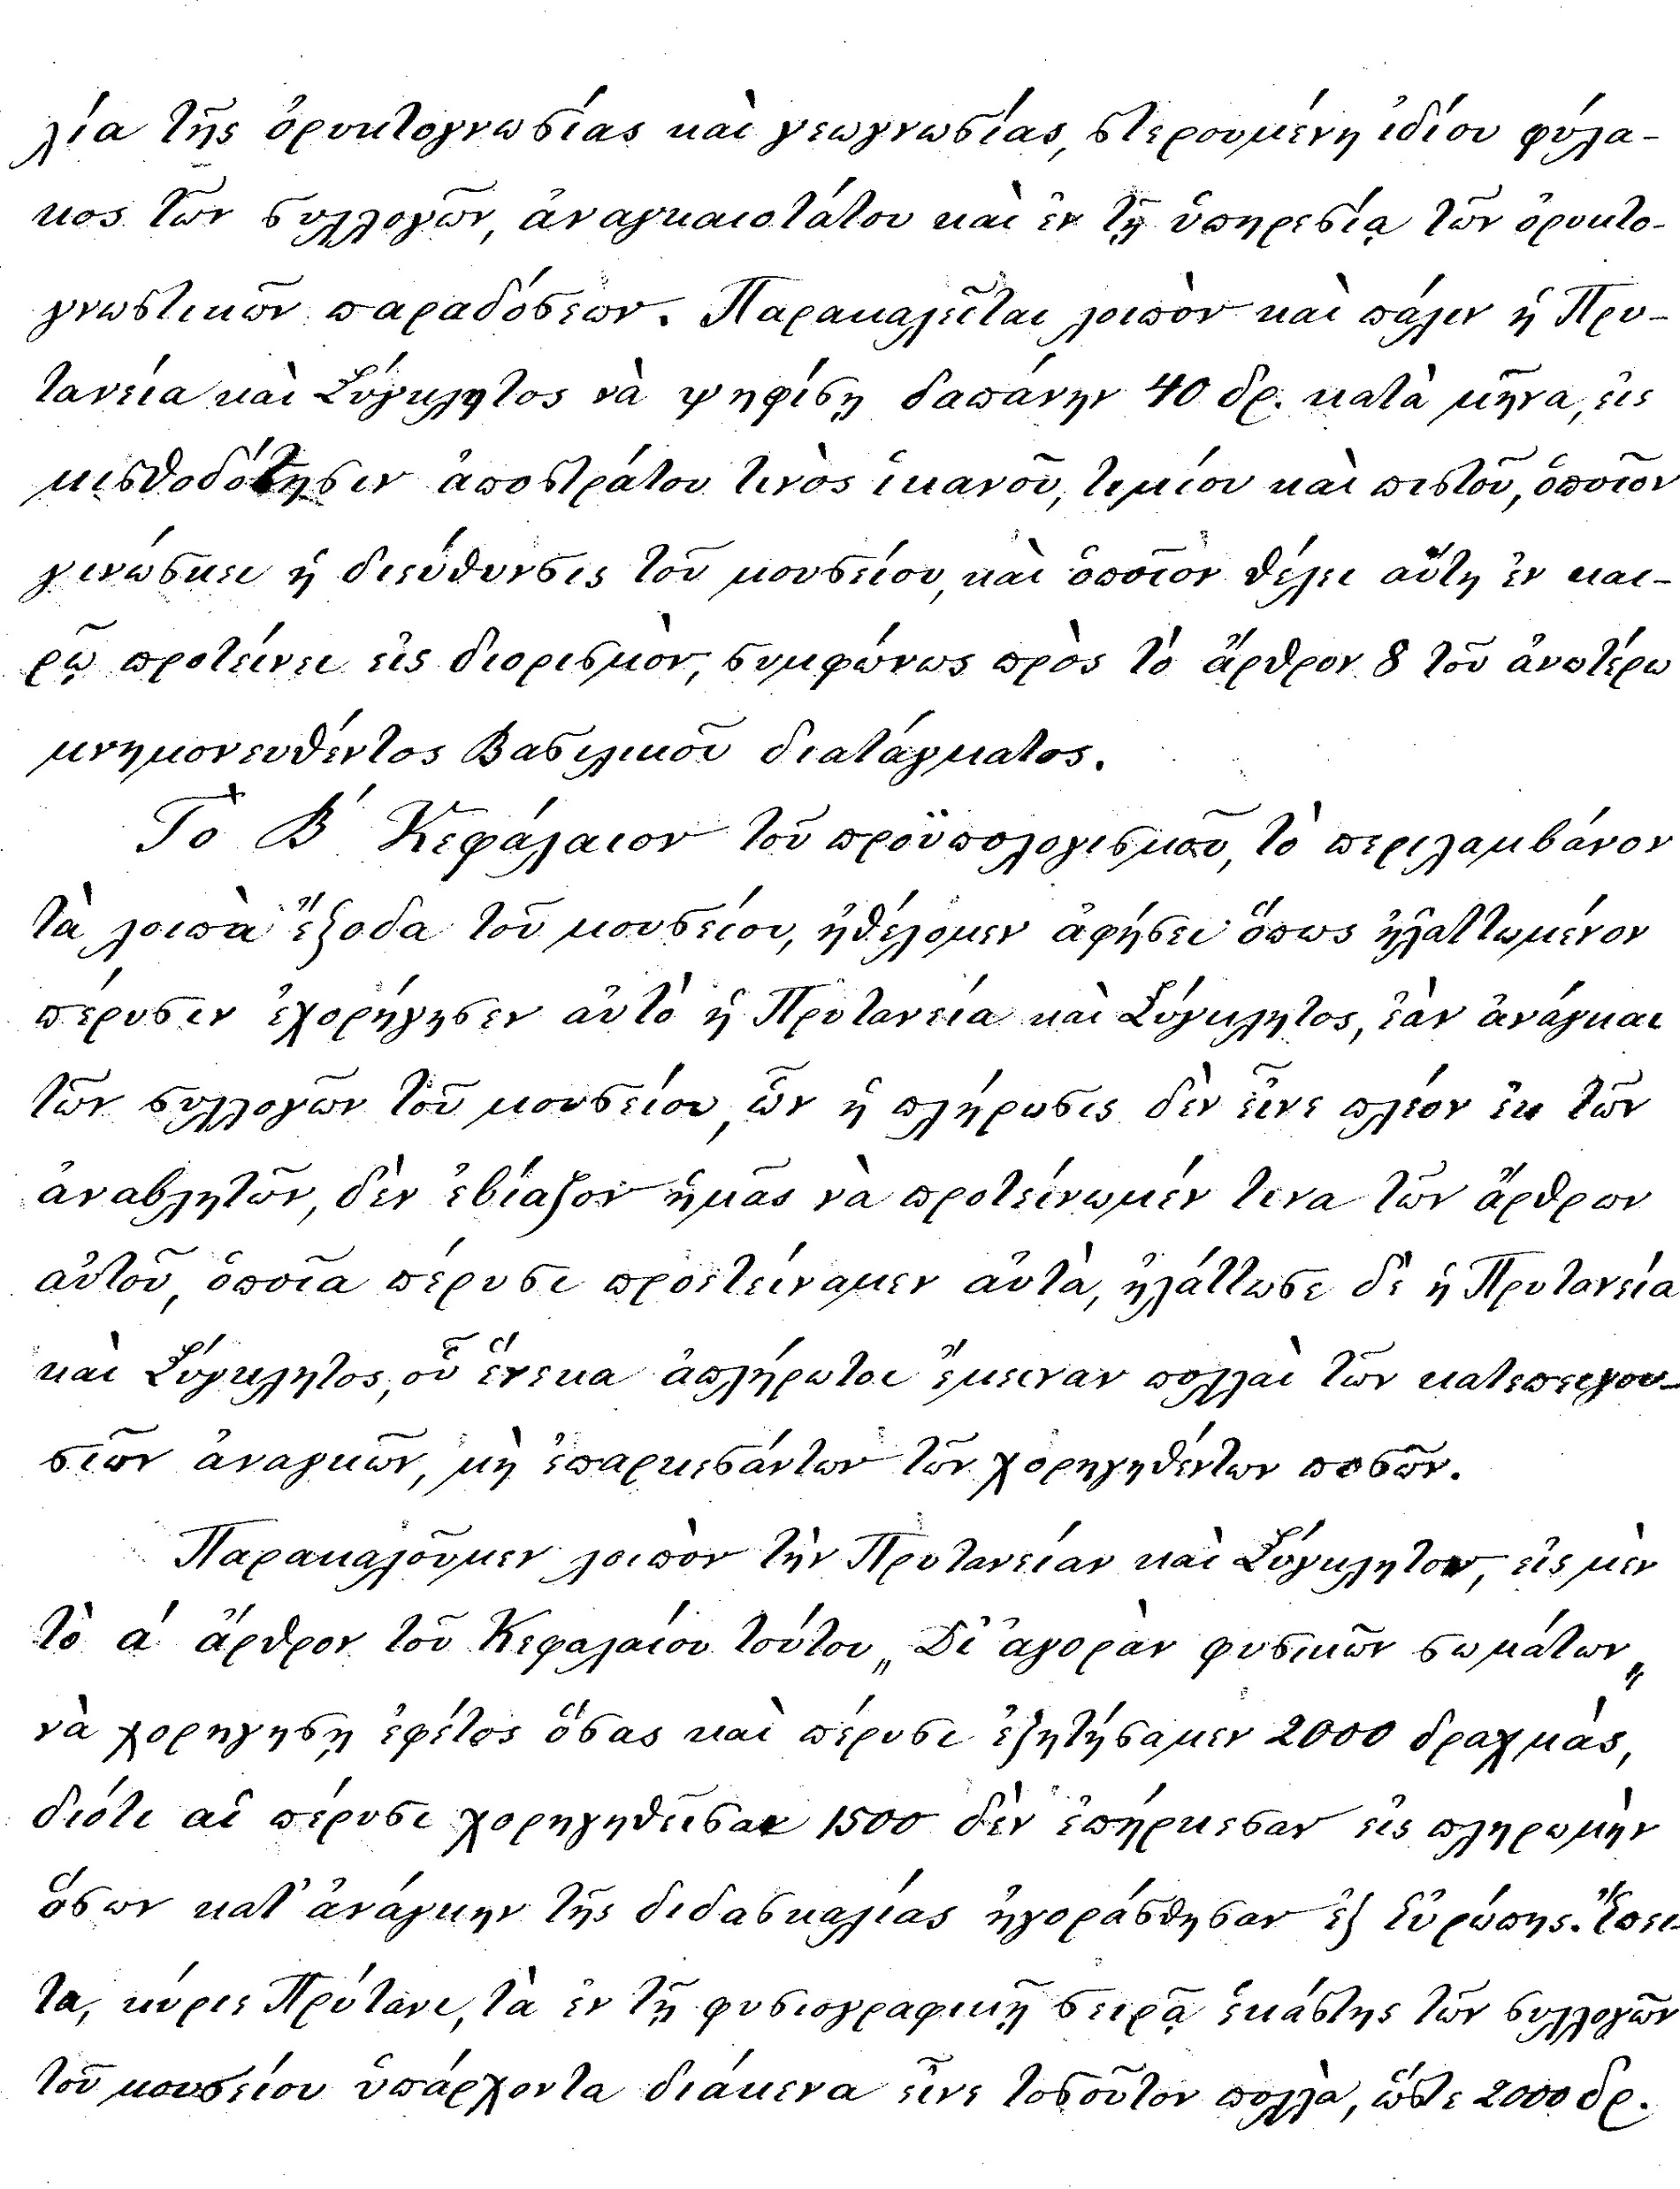 λία τῆς ὀρυκτογνωσίας καὶ γεωγνωσίας, στερουμένη ἰδίου φύλα-
κος τῶν συλλογῶν, ἀναγκαιοτάτου καὶ ἐν τῇ ὑπηρεσίᾳ τῶν ὀρυκτο-
γνωστικῶν παραδόσεων. Παρακαλεῖται λοιπὸν καὶ πάλιν ἡ Πρυ-
τανεία καὶ Σύγκλητος νὰ ψηφίσῃ δαπάνην 40 δρ. κατὰ μῆνα, εἰς
μισθοδότησιν ἀποστράτου τινὸς ἱκανοῦ, τιμίου καὶ πιστοῦ, ὁποῖον
γινώσκει ἡ διεύθυνσις τοῦ μουσείου, καὶ ὁποῖον θέλει αὕτη ἐν και-
ρῷ προτείνει εἰς διορισμὸν, συμφώνως πρὸς τὸ ἄρθρον 8 τοῦ ἀνωτέρω
μνημονευθέντος Βασιλικοῦ διατάγματος.
Τὸ Β΄ Κεφάλαιον τοῦ προϋπολογισμοῦ, τὸ περιλαμβάνον
τὰ λοιπὰ ἔξοδα τοῦ μουσείου, ἠθέλομεν ἀφήσει ὅπως ἠλαττωμένον
πέρυσιν ἐχορήγησεν αὐτὸ ἡ Πρυτανεία καὶ Σύγκλητος, ἐὰν ἀνάγκαι
τῶν συλλογῶν τοῦ μουσείου, ὧν ἡ πλήρωσις δὲν εἶνε πλέον ἐκ τῶν
ἀναβλητῶν, δὲν ἐβίαζον ἡμᾶς νὰ προτείνωμέν τινα τῶν ἄρθρων
αὐτοῦ, ὁποῖα πέρυσι προετείναμεν αὐτὰ, ἠλάττωσε δὲ ἡ Πρυτανεία
καὶ Σύγκλητος, οὗ ἕνεκα ἀπλήρωτοι ἔμειναν πολλαὶ τῶν κατεπειγου-
σῶν ἀναγκῶν, μὴ ἐπαρκεσάντων τῶν χορηγηθέντων ποσῶν.
Παρακαλοῦμεν λοιπὸν τὴν Πρυτανείαν καὶ Σύγκλητον, εἰς μὲν
τὸ α΄ ἄρθρον τοῦ Κεφαλαίου τούτου „Δι᾽ ἀγορὰν φυσικῶν σωμάτων„
νὰ χορηγήσῃ ἐφέτος ὅσας καὶ πέρυσι ἐζητήσαμεν 2000 δραχμὰς,
διότι αἱ πέρυσι χορηγηθεῖσαι 1500 δὲν ἐπήρκεσαν εἰς πληρωμὴν
ὅσων κατ᾽ ἀνάγκην τῆς διδασκαλίας ἠγοράσθησαν ἐξ Εὐρώπης. Ἔπει-
τα, κύριε Πρύτανι, τὰ ἐν τῇ φυσιογραφικῇ σειρᾷ ἑκάστης τῶν συλλογῶν
τοῦ μουσείου ὑπάρχοντα διάκενα εἶνε τοσοῦτον πολλὰ, ὥστε 2000 δρ.